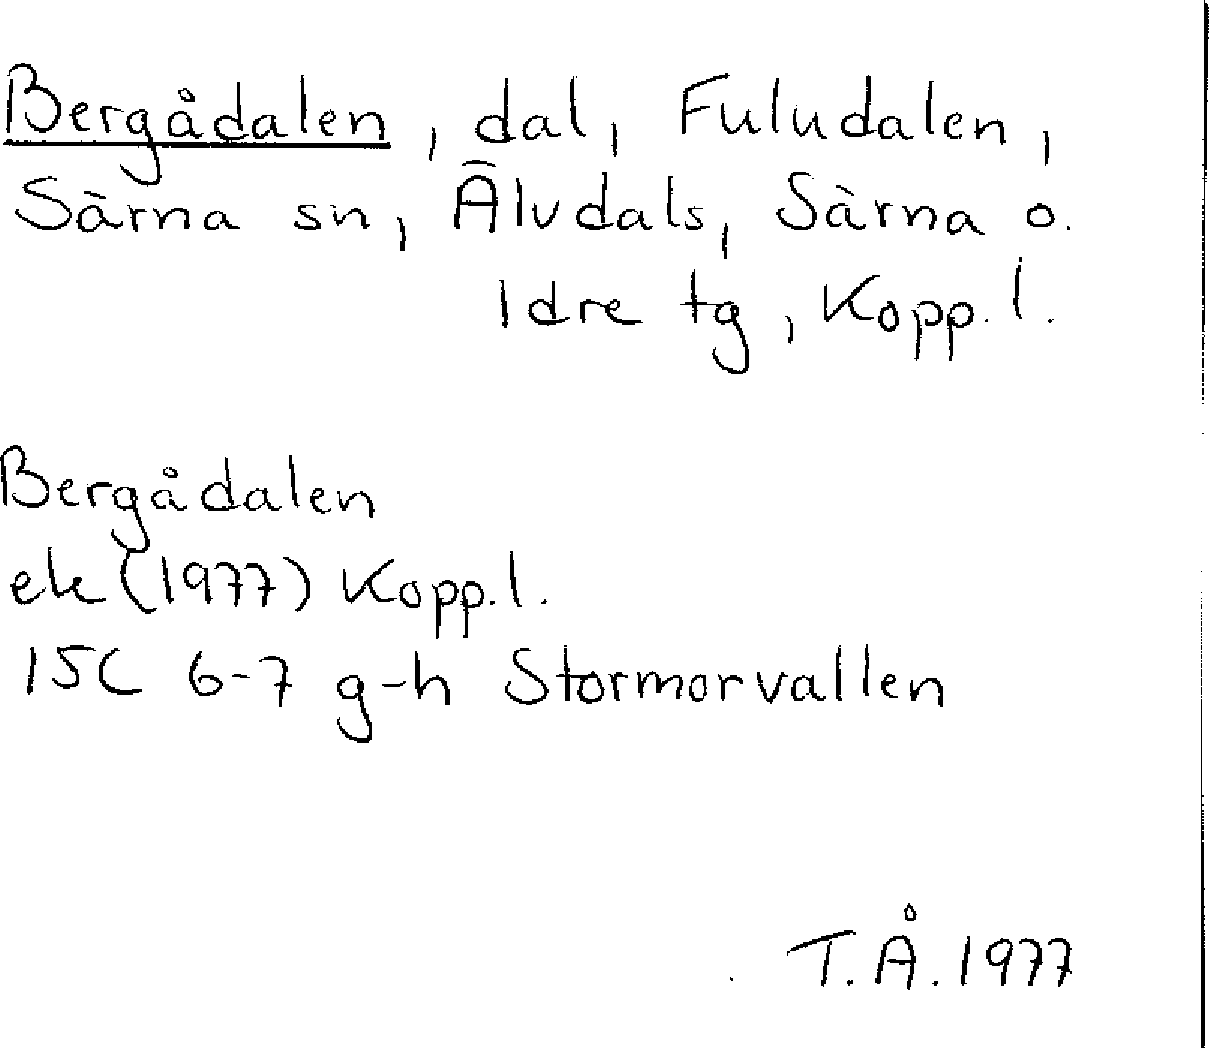 Bergådalen, dal, Fuludalen,
Särna sn, Älvdals, Särna o.
Idre tg, Kopp. l.
Bergådalen
ek (1977) Kopp. l.
15C 6-7 g-h Stormorvallen
T. Å. 1977